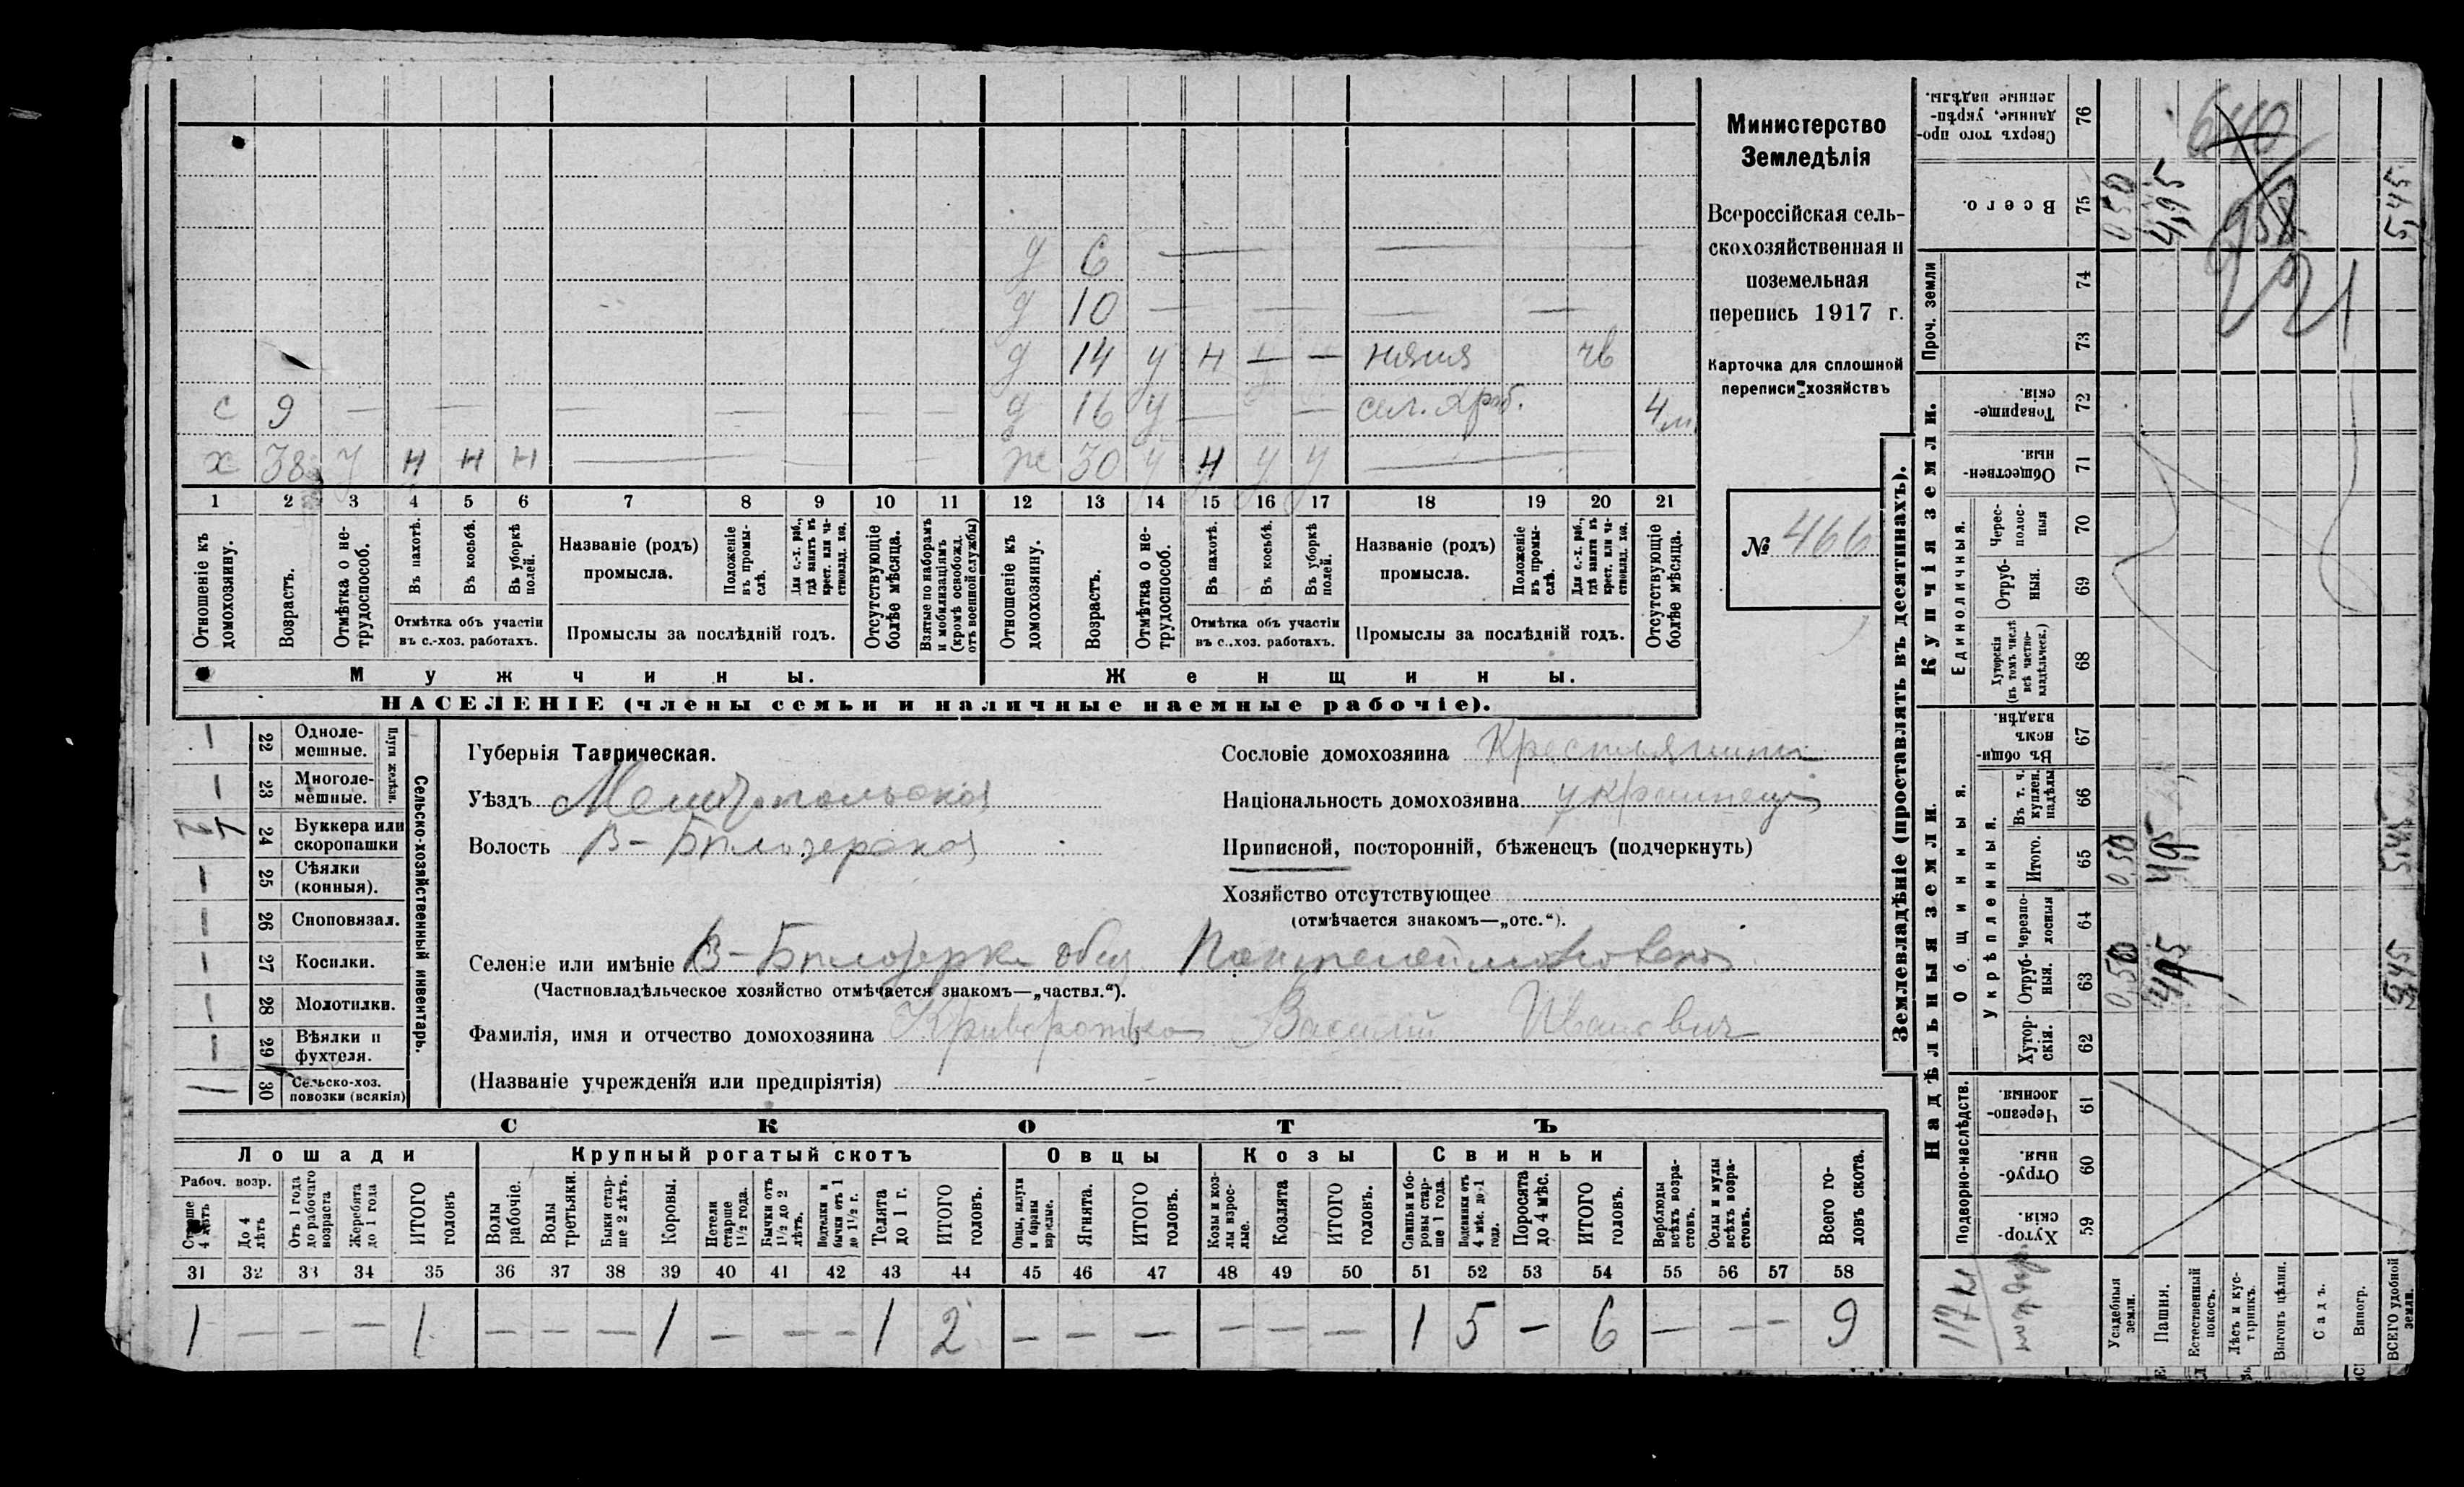 Министерство
Земледѣлія
Всероссійская сель-
скохозяйственная и
поземельная
перепись 1917 г.
Карточка для сплошной
переписи хозяйствъ
№ 466
д 6 —
д 10 — — — —
д 14 у н — — няня чв
с 9 — — — — — — д 16 у — — сел. 4 м
х 38 у н н н — — ж 30 у н у у —
1 2 3 4 5 6 7 8 9 10 11 12 13 14 15 16 17 18 19 20 21
Отношеніе къ домохозяину.
Возрастъ.
Отмѣтка о не-трудоспособ.
Въ пахотѣ.
Въ косьбѣ.
Въ уборкѣ полей.
Отмѣтка объ участіи
въ с.-хоз. работахъ.
Названіе (родъ)
промысла.
Положеніе въ промы-слѣ.
Для с.-х. раб., гдѣ занятъ въ крест. или ча-стновлад. хоз.
Промыслы за послѣдній годъ.
Отсутствующіе болѣе мѣсяца.
Взятые по наборамъ и мобилизаціямъ (кромѣ освобожд. отъ военной службы)
Отношеніе къ домохозяину.
Возрастъ.
Отмѣтка о не-трудоспособ.
Въ пахотѣ.
Въ косьбѣ.
Въ уборкѣ полей.
Отмѣтка объ участіи
въ с..хоз. работахъ.
Названіе (родъ)
промысла.
Положеніе въ промы-слѣ.
Для с.-х. раб., гдѣ занята въ крест. или ча-стновлад. хоз.
Промыслы за послѣдній годъ.
Отсутствующіе болѣе мѣсяца.
Мужчины. Женщины.
НАСЕЛЕНІЕ (члены семьи и наличные наемные рабочіе).
Сельско-хозяйственный инвентарь.
Плуги желѣзн.
— 22 Одноле-мешные.
— 23 Многоле-мешные.
24 Буккера или скоропашки
— 25 Сѣялки (конныя).
— 26 Сноповязал.
— 27 Косилки.
— 28 Молотилки.
— 29 Вѣялки и фухтеля.
1 30 Сельско-хоз. повозки (всякія)
Губернія Таврическая.
Уѣздъ Мелитопольской
Волость В-Бѣлозерской
Сословіе домохозяина Крестьянинъ
Національность домохозяина украинецъ
Приписной, посторонній, бѣженецъ (подчеркнуть)
Хозяйство отсутствующее
(отмѣчается знакомъ—„отс.“).
Селеніе или имѣніе В-Бѣлозерка общ. Пантелеймоновской
(Частновладѣльческое хозяйство отмѣчается знакомъ—„частвл.“).
Фамилія, имя и отчество домохозяина Криворотько Василій Ивановичъ
(Названіе учрежденія или предпріятія)
СКОТЪ
Лошади Крупный рогатый скотъ Овцы Козы Свиньи
Рабоч. возр.
Старше 4 лѣтъ
До 4 лѣтъ
Отъ 1 года до рабочаго возраста
Жеребята до 1 года
ИТОГО головъ
Волы рабочіе.
Волы третьяки.
Быки стар-ше 2 лѣтъ.
Коровы.
Нетели старше 1½ года.
Бычки отъ 1½ до 2 лѣтъ.
Подтелки и бычки отъ 1 до 1½ г.
Телята до 1 г.
ИТОГО головъ.
Овцы, валухи и бараны взрослые.
Ягнята.
ИТОГО головъ.
Козы и коз-лы взрос-лые.
Козлята
ИТОГО головъ.
Свиньи и бо-ровы стар-ше 1 года.
Подсвинки отъ 4 мѣс. до 1 года.
Поросята до 4 мѣс.
ИТОГО головъ.
Верблюды всѣхъ возра-стовъ.
Ослы и мулы всѣхъ возра-стовъ.
Всего го-ловъ скота.
31 32 33 34 35 36 37 38 39 40 41 42 43 44 45 46 47 48 49 50 51 52 53 54 55 56 57 58
1 — — — 1 — — — 1 — — — 1 2 — — — — — — 1 5 — 6 — — — 9
Землевладѣніе (проставлять въ десятинахъ).
Надѣльныя земли.
Купчія земли.
Проч. земли
Подворно-наслѣдств.
Общинныя.
Укрѣпленныя.
Единоличныя.
Сверхъ того про-данные, укрѣп-ленные надѣлы. 76
Всего. 75 0,50 4,95 5,45
74
73
Товарище-скія. 72
Обществен-ныя. 71
Черес-полос-ныя 70
Отруб-ныя. 69
Хуторскія (въ томъ числѣ всѣ частно-владѣльческ.) 68
Въ общи-номъ владѣн. 67
Въ т. ч. куплен. надѣлы 66
Итого. 65 0,50 4,95 5,45
Черезпо-лосныя 64
Отруб-ныя. 63 0,50 4,95 5,45
Хутор-скія. 62
Черезпо-лосныя 61
Отруб-ныя. 60
Хутор-скія. 59
Усадебныя земли.
Пашня.
Естественный покосъ.
Лѣсъ и кус-тарникъ.
Выгонъ цѣлин.
Садъ.
Виногр.
ВСЕГО удобной земли.
640
21